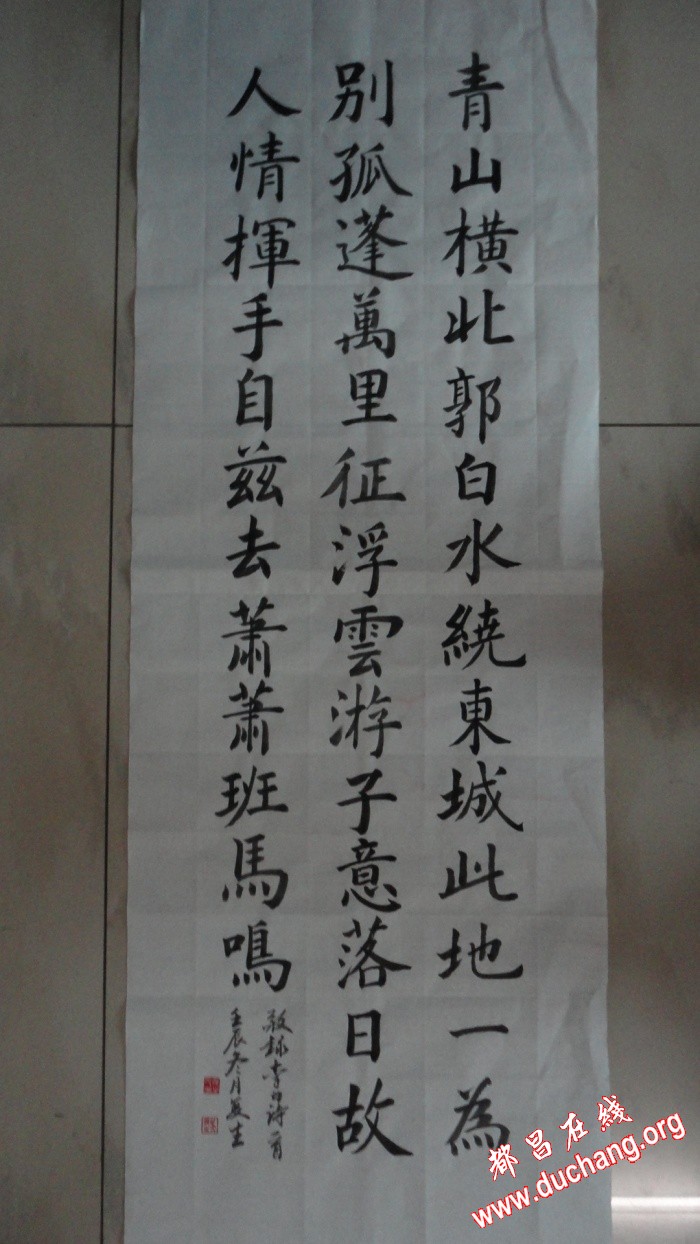 青山橫北郭白水繞東城此地一為
别孤蓬萬里征浮雲游子意落日故
人情揮手自兹去蕭蕭班馬鳴
敬錄李白詩一首
壬辰冬月
都昌在线
www.duchang.org